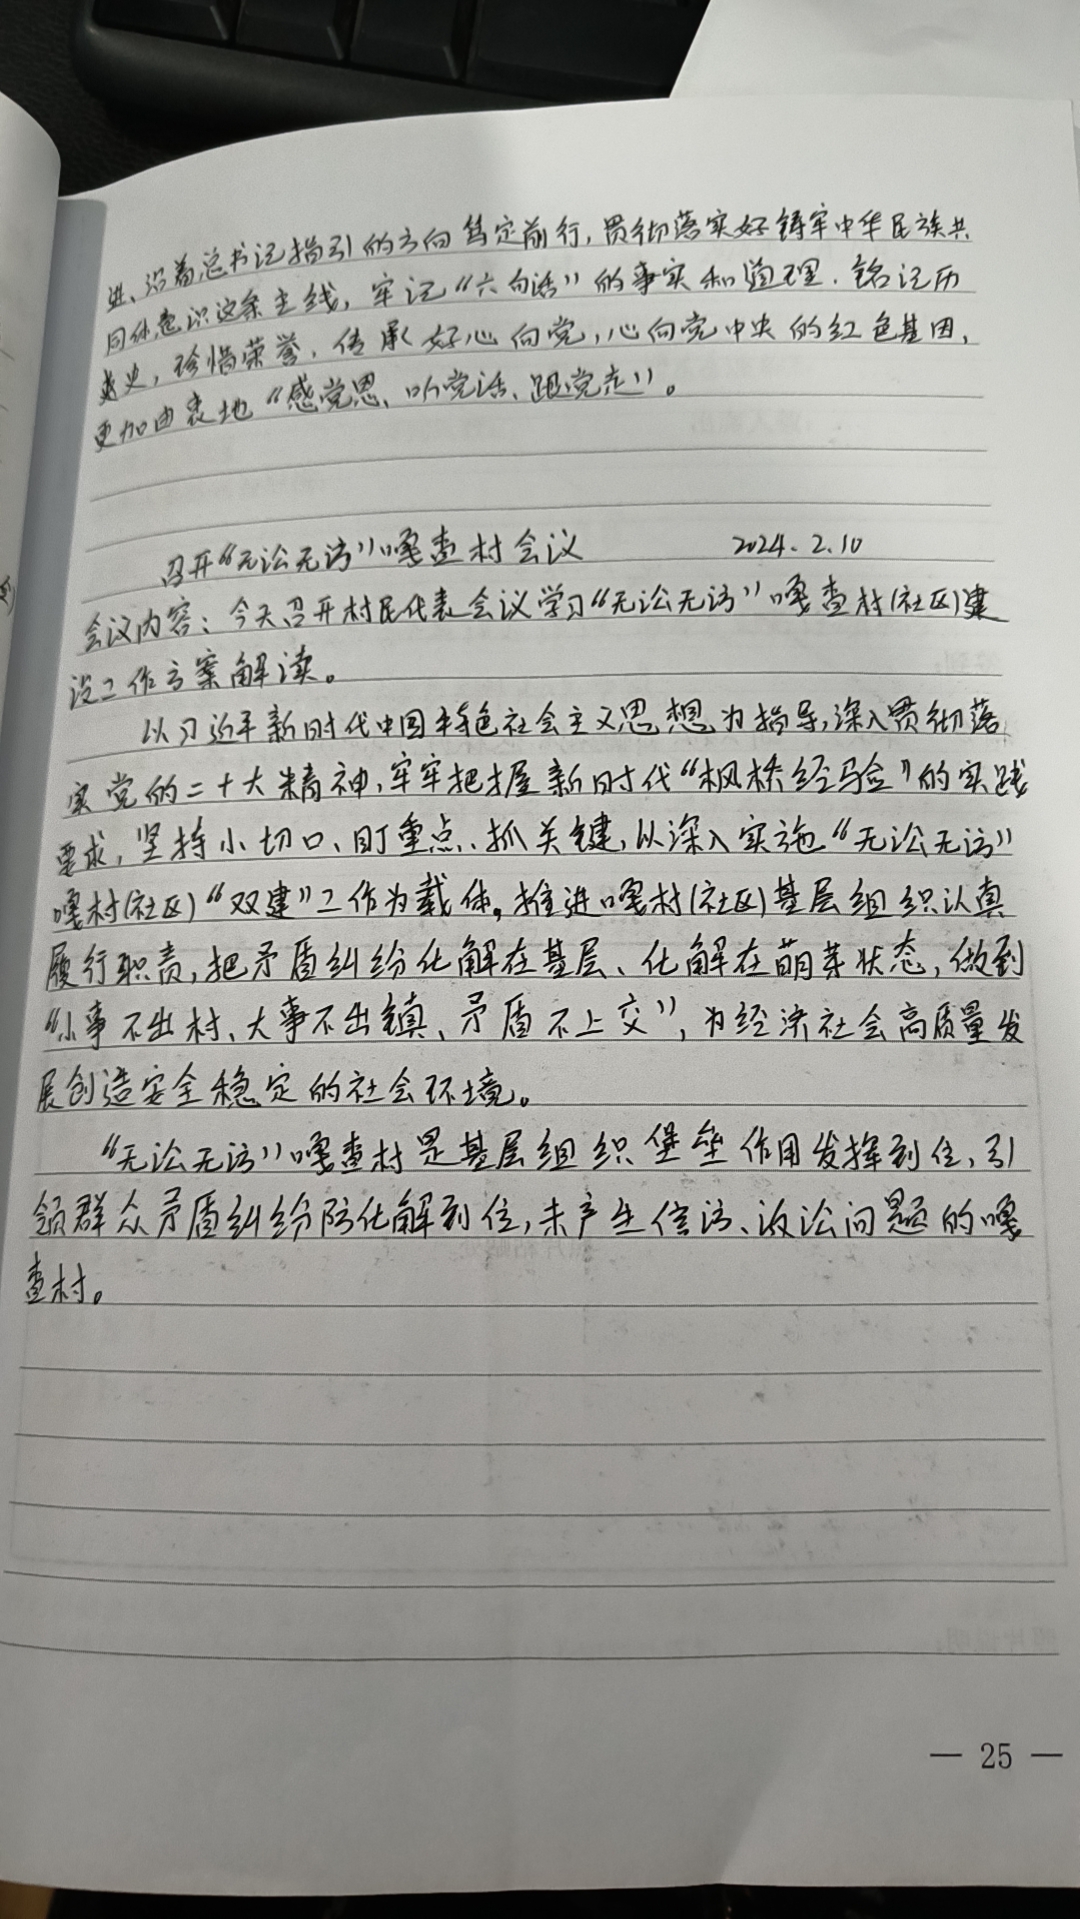 进、沿着总书记指引的方向笃定前行,贯彻落实好铸牢中华民族共
同体意识这条主线,牢记“六句话”的事实和道理.铭记历
史,珍惜荣誉,传承好心向党,心向党中央的红色基因,
更加由衷地“感党恩、听党话、跟党走”。
召开“无讼无访”嘎查村会议 2024.2.10
会议内容:今天召开村民代表会议学习“无讼无访”嘎查村(社区)建
设工作方案解读。
以习近平新时代中国特色社会主义思想为指导,深入贯彻落
实党的二十大精神,牢牢把握新时代“枫桥经验”的实践
要求,坚持小切口、盯重点、抓关键,以深入实施“无讼无访”
嘎村(社区)“双建”工作为载体。推进嘎村(社区)基层组织认真
履行职责,把矛盾纠纷化解在基层、化解在萌芽状态,做到
“小事不出村、大事不出镇、矛盾不上交”,为经济社会高质量发
展创造安全稳定的社会环境。
“无讼无访”嘎查村是基层组织堡垒作用发挥到位,引
领群众矛盾纠纷防化解到位,未产生信访、诉讼问题的嘎
查村。
— 25 —